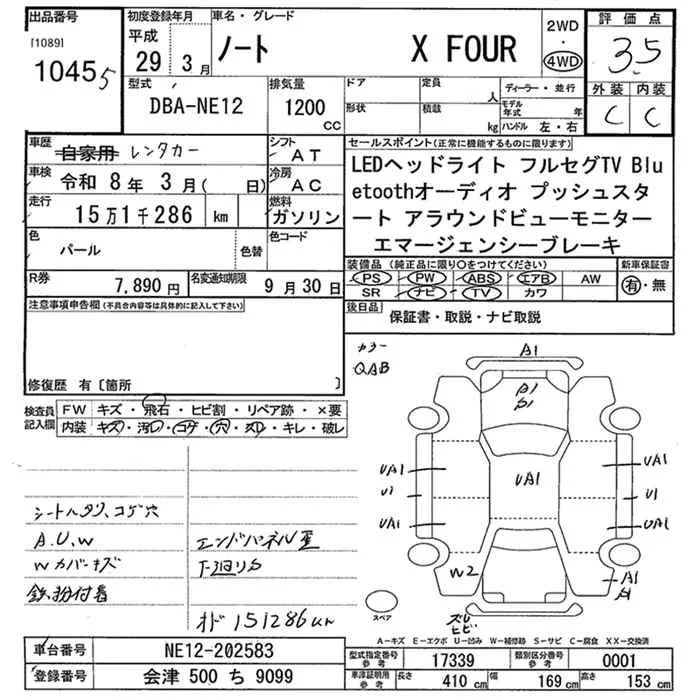 出品番号
[1089]
1045 5
初度登録年月
平成
29年 3月
車名・グレード
ノート X FOUR
2WD
・
4WD
評価点
3.5
外装 内装
C C
型式
DBA-NE12
排気量
1200
CC
ドア
形状
定員
人
積載
kg
ディーラー・並行
モデル年式 年
ハンドル 左・右
車歴
自家用 レンタカー
シフト
AT
車検
令和 8年 3月( 日)
冷房
AC
走行
15万1千286 km
燃料
ガソリン
色
パール
色替
色コード
R券
7,890円
名変通知期限
9月30日
セールスポイント(正常に機能するものに限ります)
LEDヘッドライト フルセグTV Blu
etoothオーディオ プッシュスタ
ート アラウンドビューモニター
エマージェンシーブレーキ
装備品 (純正品に限り○をつけてください)
PS PW ABS エアB AW
SR ナビ TV カワ
新車保証書
有・無
後日品
保証書・取説・ナビ取説
注意事項申告欄(不具合内容等は具体的に記入して下さい)
修復歴 有〔箇所 〕
検査員
記入欄
FW キズ・飛石・ヒビ割・リペア跡・×要
内装 キズ・汚レ・コゲ・穴・スレ・キレ・破レ
シートルタリ、コゲ穴
A.U.W
Wカバーキズ
鉄粉付着
エンドパネル歪
下廻リカ
オド151286km
カラー
QAB
A1
A1
UA1
U1
UA1
UA1
UA1
U1
UA1
W2
A1
スペア
ヒビ
A-キズ E-エクボ U-凹み W-補修跡 S-サビ C-腐食 XX-交換済
車台番号
NE12-202583
登録番号
会津 500 ち 9099
型式指定番号
参考
17339
類別区分番号
参考
0001
車庫証明用
参考
長さ 410 cm
幅 169 cm
高さ 153 cm